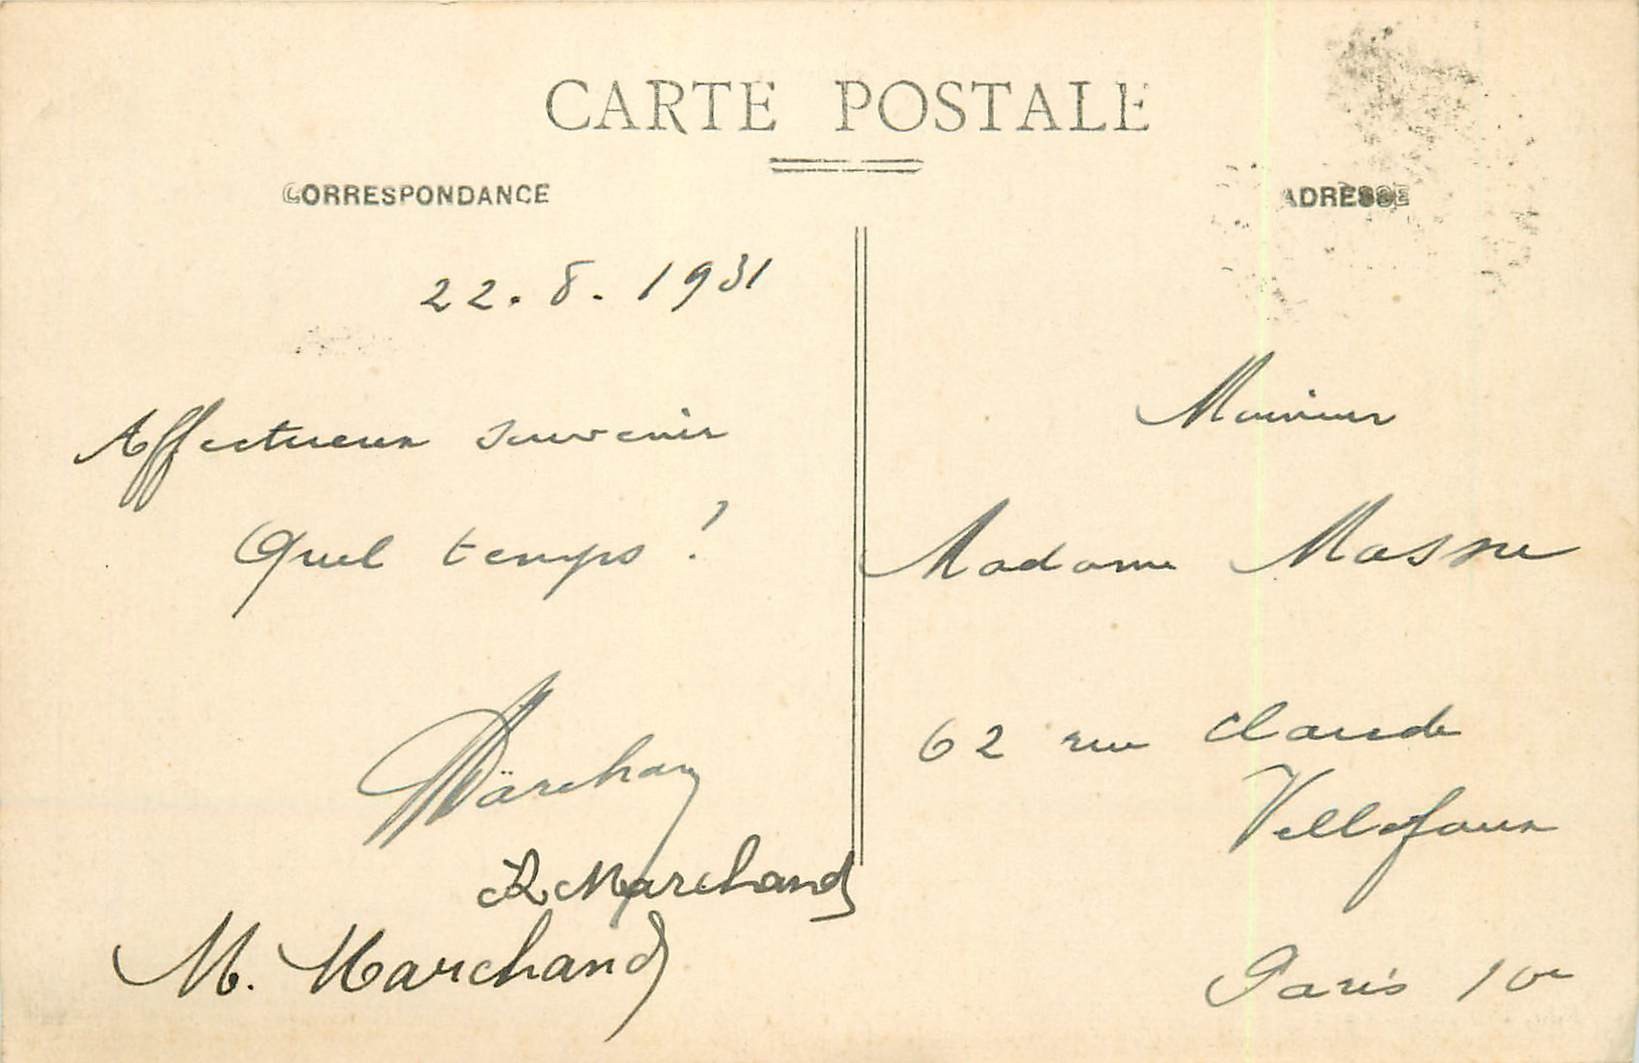 CARTE POSTALE
CORRESPONDANCE
ADRESSE
22.8.1931
Affectueux souvenir
Quel temps!
Marchand
R Marchand
M. Marchand
Monsieur
Madame Masse
62 rue Claude
Vellefaux
Paris 10e